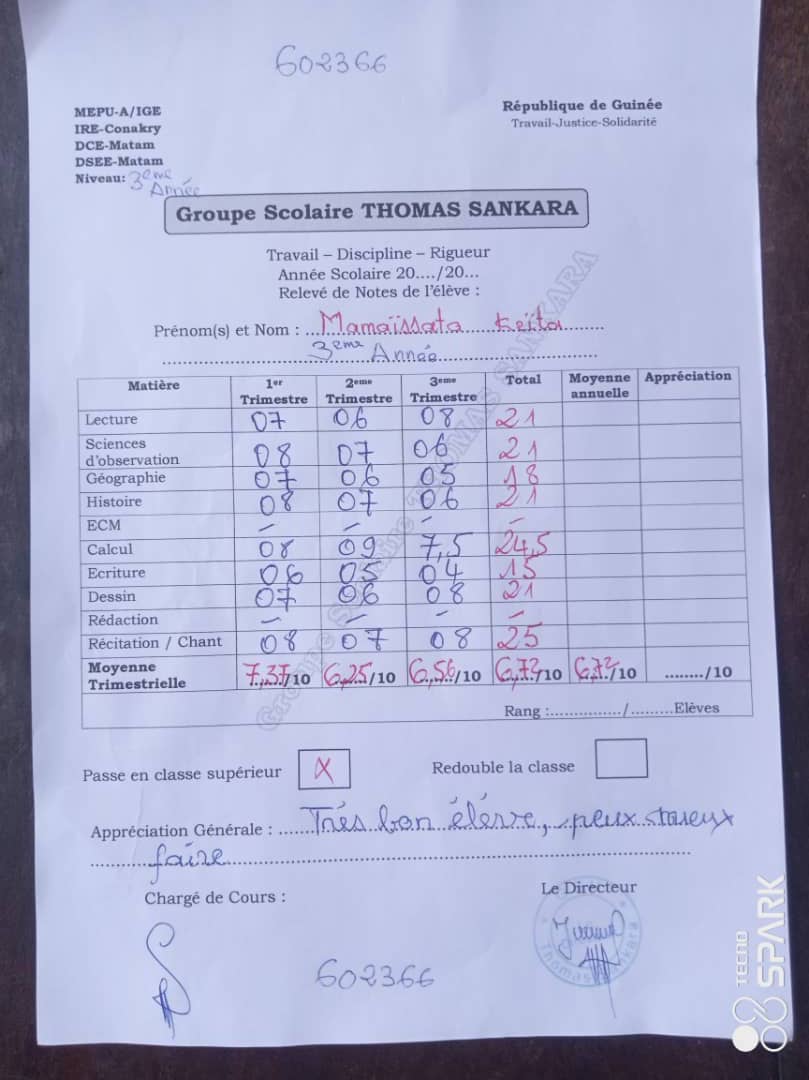 602366
MEPU-A/IGE
République de Guinée
IRE-Conakry
Travail-Justice-Solidarité
DCE-Matam
DSEE-Matam
Niveau: 3eme Année
Groupe Scolaire THOMAS SANKARA
Travail – Discipline – Rigueur
Année Scolaire 20..../20...
Relevé de Notes de l'élève :
Prénom(s) et Nom : ...Mamaïssata Keïta........
3eme Année
Matière 1er Trimestre 2eme Trimestre 3eme Trimestre Total Moyenne annuelle Appréciation
Lecture 07 06 08 21
Sciences d'observation 08 07 06 21
Géographie 07 06 05 18
Histoire 08 07 06 21
ECM – – – –
Calcul 08 09 7,5 24,5
Ecriture 06 05 04 15
Dessin 07 06 08 21
Rédaction – – – –
Récitation / Chant 08 07 08 25
Moyenne Trimestrielle 7,37/10 6,25/10 6,56/10 6,72/10 6,72/10 ......../10
Rang :.............../.........Elèves
Passe en classe supérieur X Redouble la classe
Appréciation Générale : ......Très bon élève, peux
faire
Chargé de Cours :
Le Directeur
Thomas Sankara
602366
Groupe Scolaire THOMAS SANKARA
TECNO
SPARK